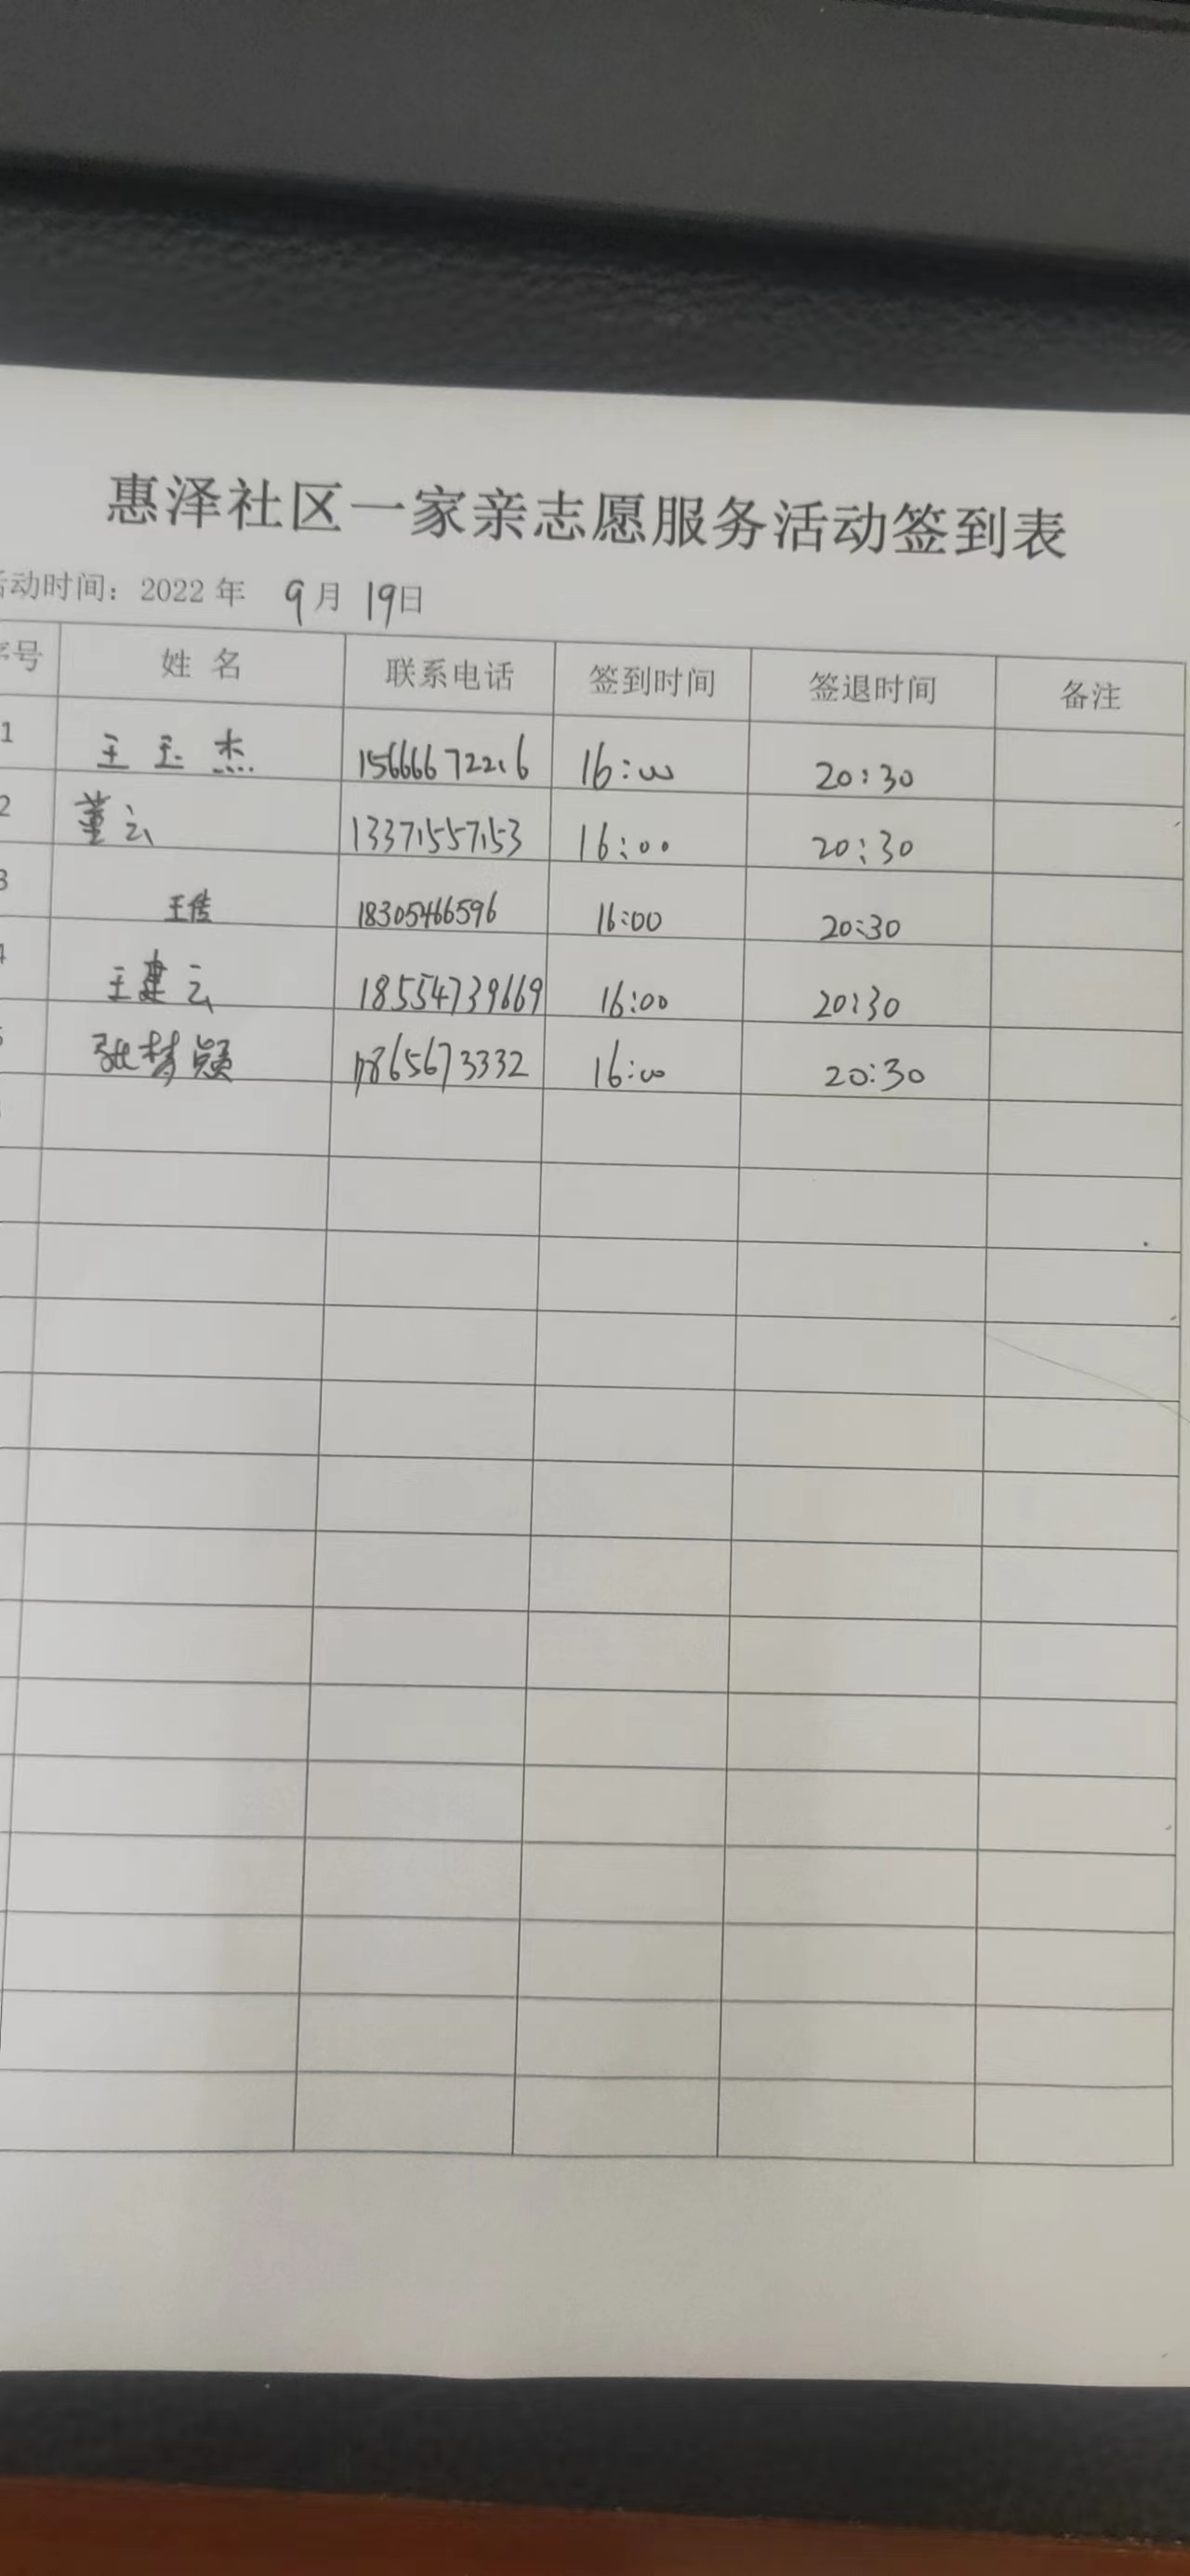 惠泽社区一家亲志愿服务活动签到表
活动时间：2022年 9月 19日
序号 姓名 联系电话 签到时间 签退时间 备注
1 王玉杰 15666672216 16:00 20:30
2 董云 13371557153 16:00 20:30
3 王传 18305466596 16:00 20:30
4 王建云 18554739669 16:00 20:30
5 张梦颖 17865673332 16:00 20:30